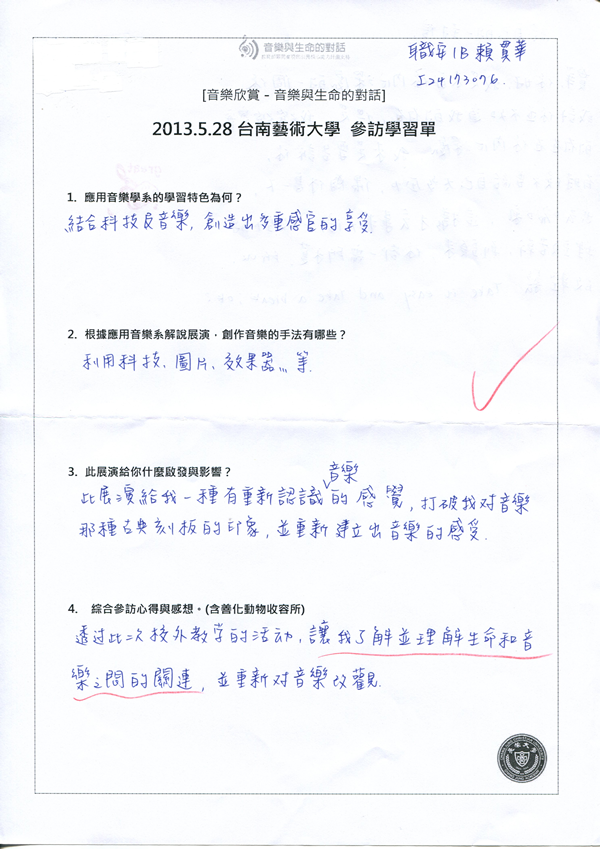 音樂與生命的對話
職安1B 賴貫華
I24173076
[音樂欣賞 - 音樂與生命的對話]
2013.5.28 台南藝術大學 參訪學習單
1. 應用音樂學系的學習特色為何？
結合科技及音樂, 創造出多重感官的享受.
2. 根據應用音樂系解說展演，創作音樂的手法有哪些？
利用科技、圖片、效果器…等.
3. 此展演給你什麼啟發與影響？
音樂
此展演給我一種有重新認識的感覺, 打破我对音樂
那種古典刻板的印象, 並重新建立出音樂的感受.
4. 綜合參訪心得與感想。(含善化動物收容所)
透过此次校外教学的活动, 讓我了解並理解生命和音
樂之間的關連, 並重新对音樂改觀.